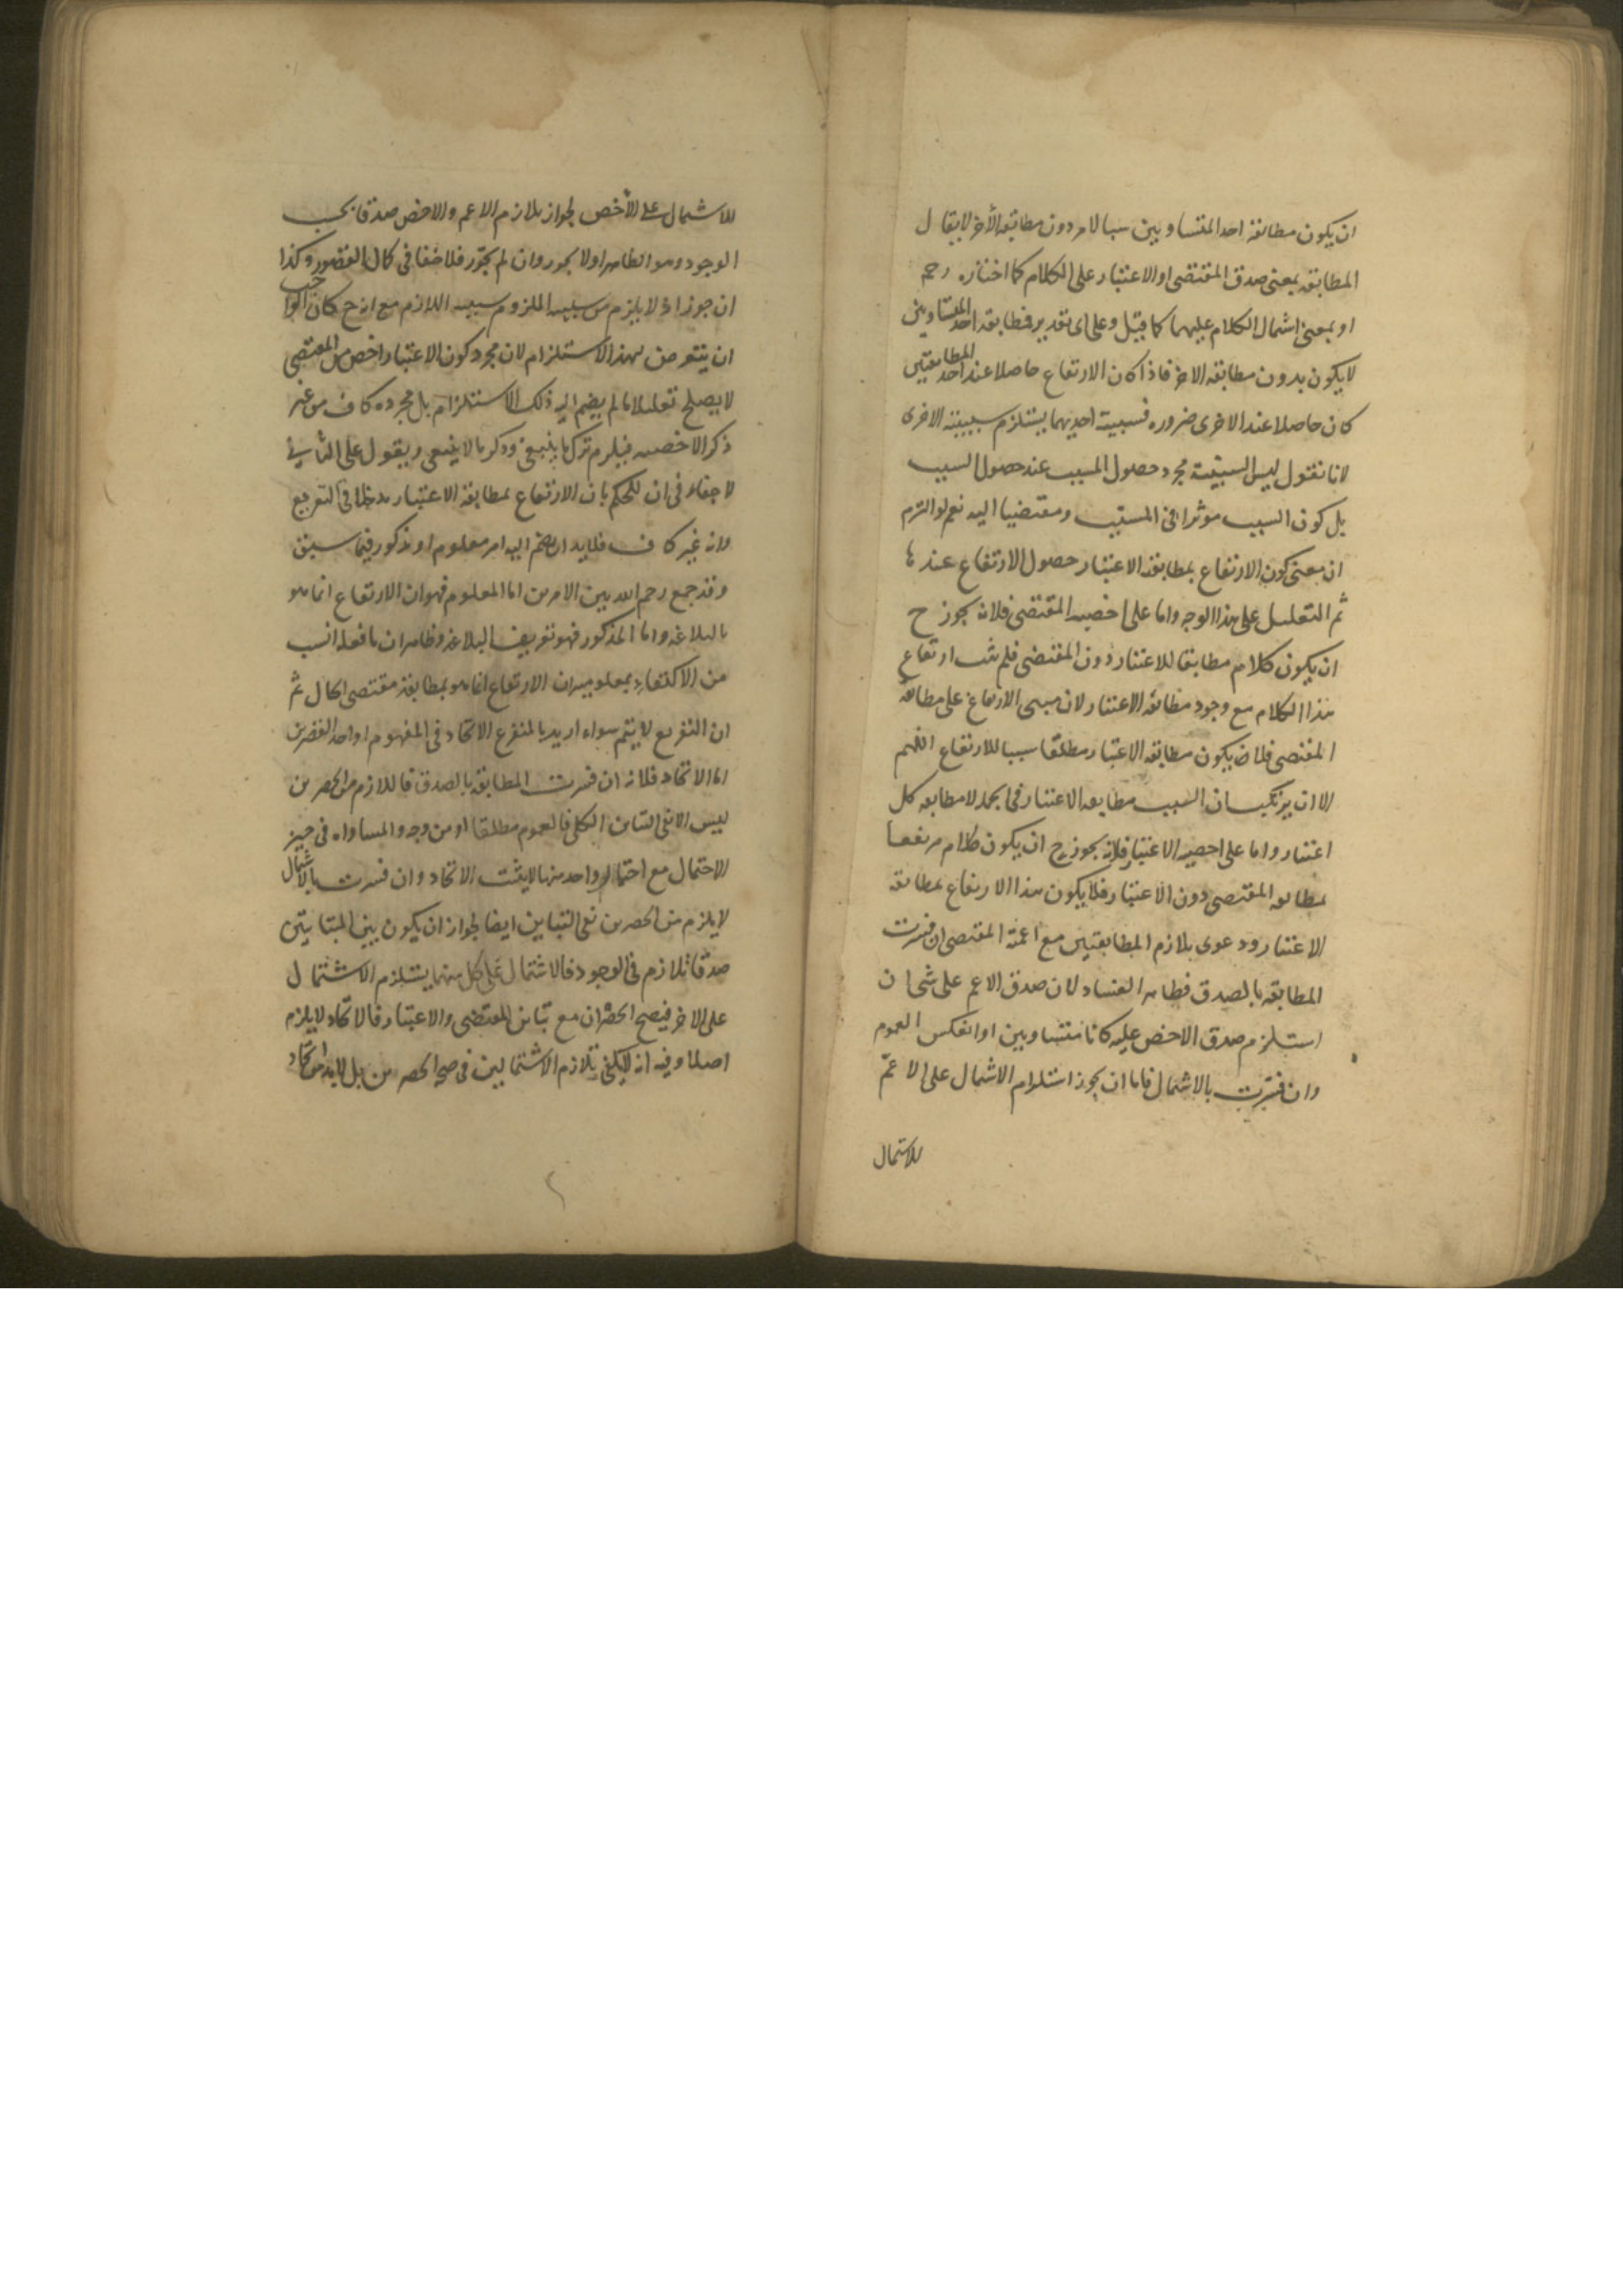 ان يكون مطابقة احد المتساويين سببا لامر دون مطابقة الآخر لا يقال
المطابقة بمعنى صدق المقتضى او الاعتبار على الكلام كما اختاره رحمه
او بمعنى اشمال الكلام عليهما كما قيل وعلى اى تقدير فمطابقة احد المتساويين
لا يكون بدون مطابقة الاخر فاذا كان الارتفاع حاصلا عند احد المطابقتين
كان حاصلا عند الاخرى ضرورة فسببية احديهما يستلزم سببية الاخرى
لانا نقول ليس السببية مجرد حصول المسبب عند حصول السبب
بل كون السبب موثرا فى المسبب ومقتضيا اليه نعم لو التزم
ان معنى كون الارتفاع بمطابقة الاعتبار حصول الارتفاع عندها
ثم التعليل على هذا الوجه واما على اخصية المقتضى فلانه يجوز ح
ان يكون كلام مطابقا للاعتبار دون المقتضى فلم يثبت ارتفاع
هذا الكلام مع وجود مطابقة الاعتبار لان مبنى الارتفاع على مطابقة
المقتضى فلا يكون مطابقة الاعتبار مطلقا سببا للارتفاع اللهم
الا ان يرتكب ان السبب مطابقة الاعتبار فى الجملة لا مطابقة كل
اعتبار واما على اخصية الاعتبار فلانه يجوز ح ان يكون كلام مرتفعا
بمطابقة المقتضى دون الاعتبار فلا يكون هذا الارتفاع بمطابقة
الاعتبار ودعوى تلازم المطابقتين مع اعمية المقتضى ان فسرت
المطابقة بالصدق فظاهر الفساد لان صدق الاعم على شئ ان
استلزم صدق الاخص عليه كانا متساويين او انعكس العموم
وان فسرت بالاشمال فاما ان يجوز استلزام الاشمال على الاعم
للاشتمال
للاشمال على الأخص لجواز تلازم الاعم والاخص صدقا بحسب
الوجود وهو الظاهر اولا يجوز وان لم يجوز فلا خفا فى كمال القصور وكذا
ان جوز اذ لا يلزم من سببية الملزوم سببية اللازم مع انه ح كان الواجب
ان يتعرض لهذا الاستلزام لان مجرد كون الاعتبار اخص من المقتضى
لا يصلح تعليلا ما لم يضم اليه ذلك الاستلزام بل مجرده كاف من غير
ذكر الاخصية فيلزم ترك ما ينبغى وذكر ما لا ينبغى ويقول على الثانى
لا خفاء فى ان للحكم بان الارتفاع بمطابقة الاعتبار مدخلا فى التفريع
وانه غير كاف فلا بد ان يضم اليه امر معلوم او مذكور فيما سبق
وقد جمع رحمه الله بين الامرين اما المعلوم فهو ان الارتفاع انما هو
بالبلاغة واما المذكور فهو تعريف البلاغة وظاهر ان ما فعله انسب
من الاكتفاء بمعلومية ان الارتفاع انما هو بمطابقة مقتضى الحال ثم
ان التفريع لا يتم سواء اريد بالمتفرع الاتحاد فى المفهوم او احد القصرين
اما الاتحاد فلانه ان فسرت المطابقة بالصدق فاللازم من الحصرين
ليس الا نفى التباين الكلى فالعموم مطلقا او من وجه والمساواة فى حيز
الاحتمال مع احتمال واحد منها لا يثبت الاتحاد وان فسرت بالاشمال
لا يلزم من الحصرين نفى التباين ايضا لجواز ان يكون بين المتباينين
صدقا تلازم فى الوجود فالاشتمال على كل منهما يستلزم الاشتمال
على الاخر فيصح الحصران مع تباين المقتضى والاعتبار فالاتحاد لا يلزم
اصلا وفيه انه لا يكفى تلازم الاشتمالين فى صحة الحصرين بل لا بد من اتحاد